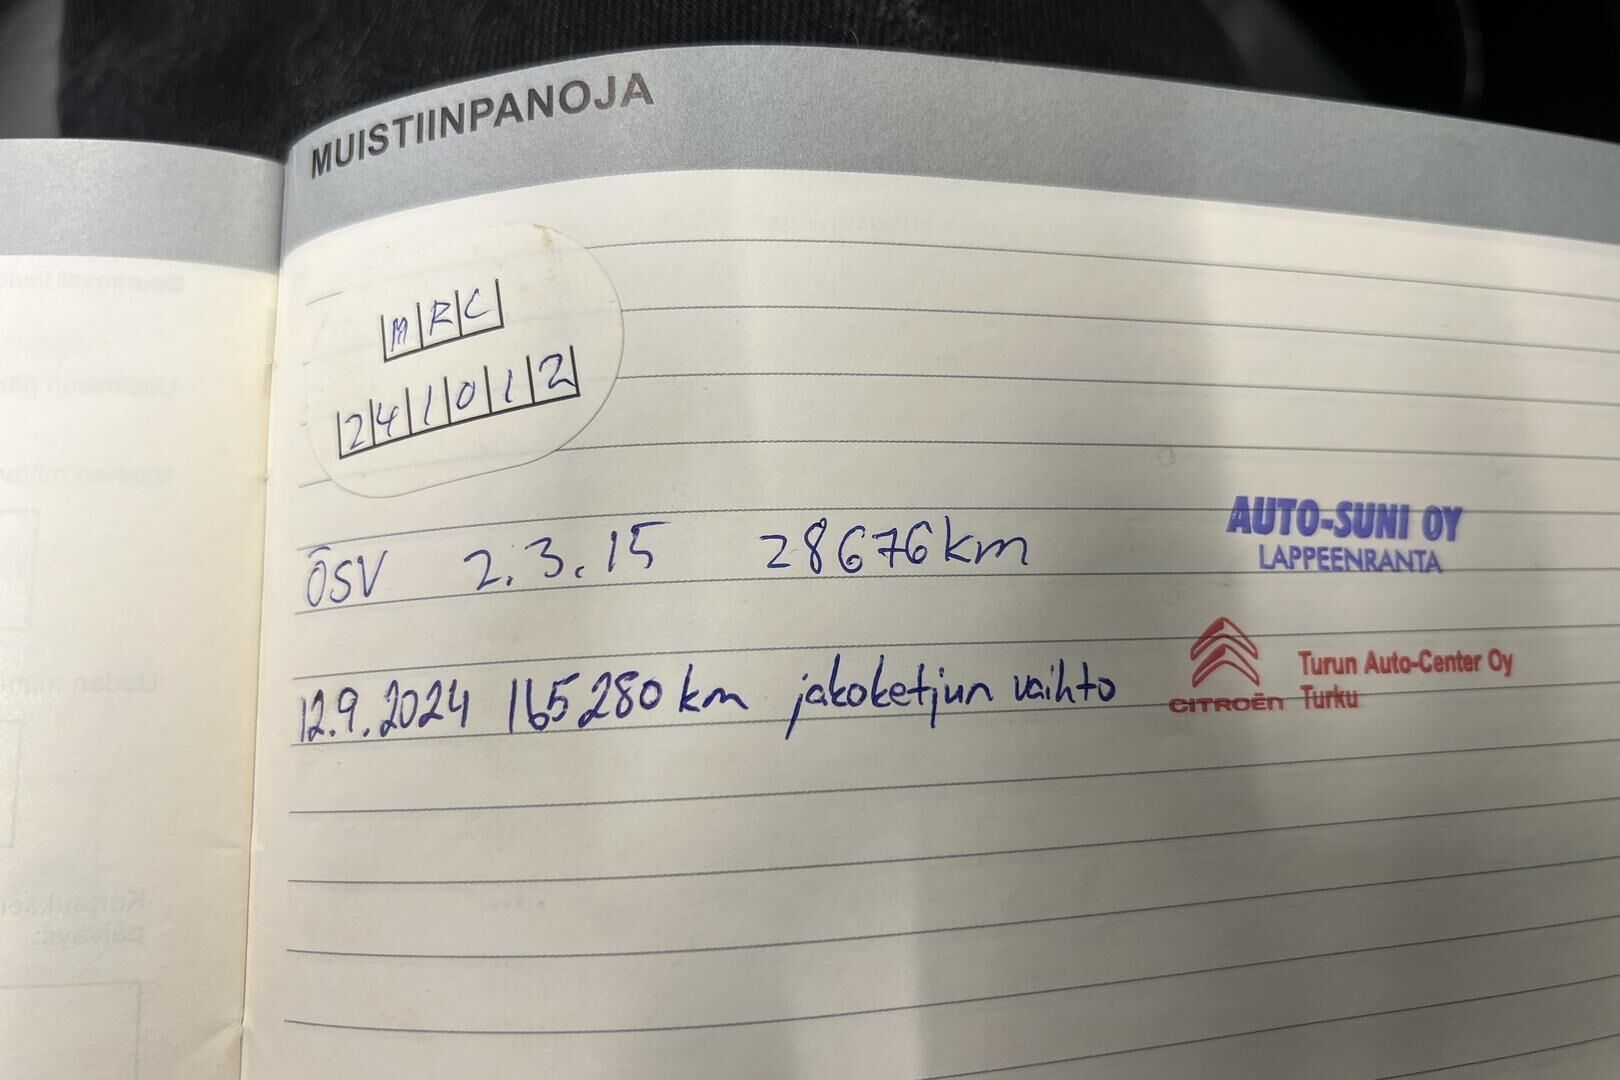 MUISTIINPANOJA
MRC
241012
ÖSV 2.3.15 28676 km
AUTO-SUNI OY
LAPPEENRANTA
12.9.2024 165280 km jakoketjun vaihto
CITROËN
Turun Auto-Center Oy
Turku